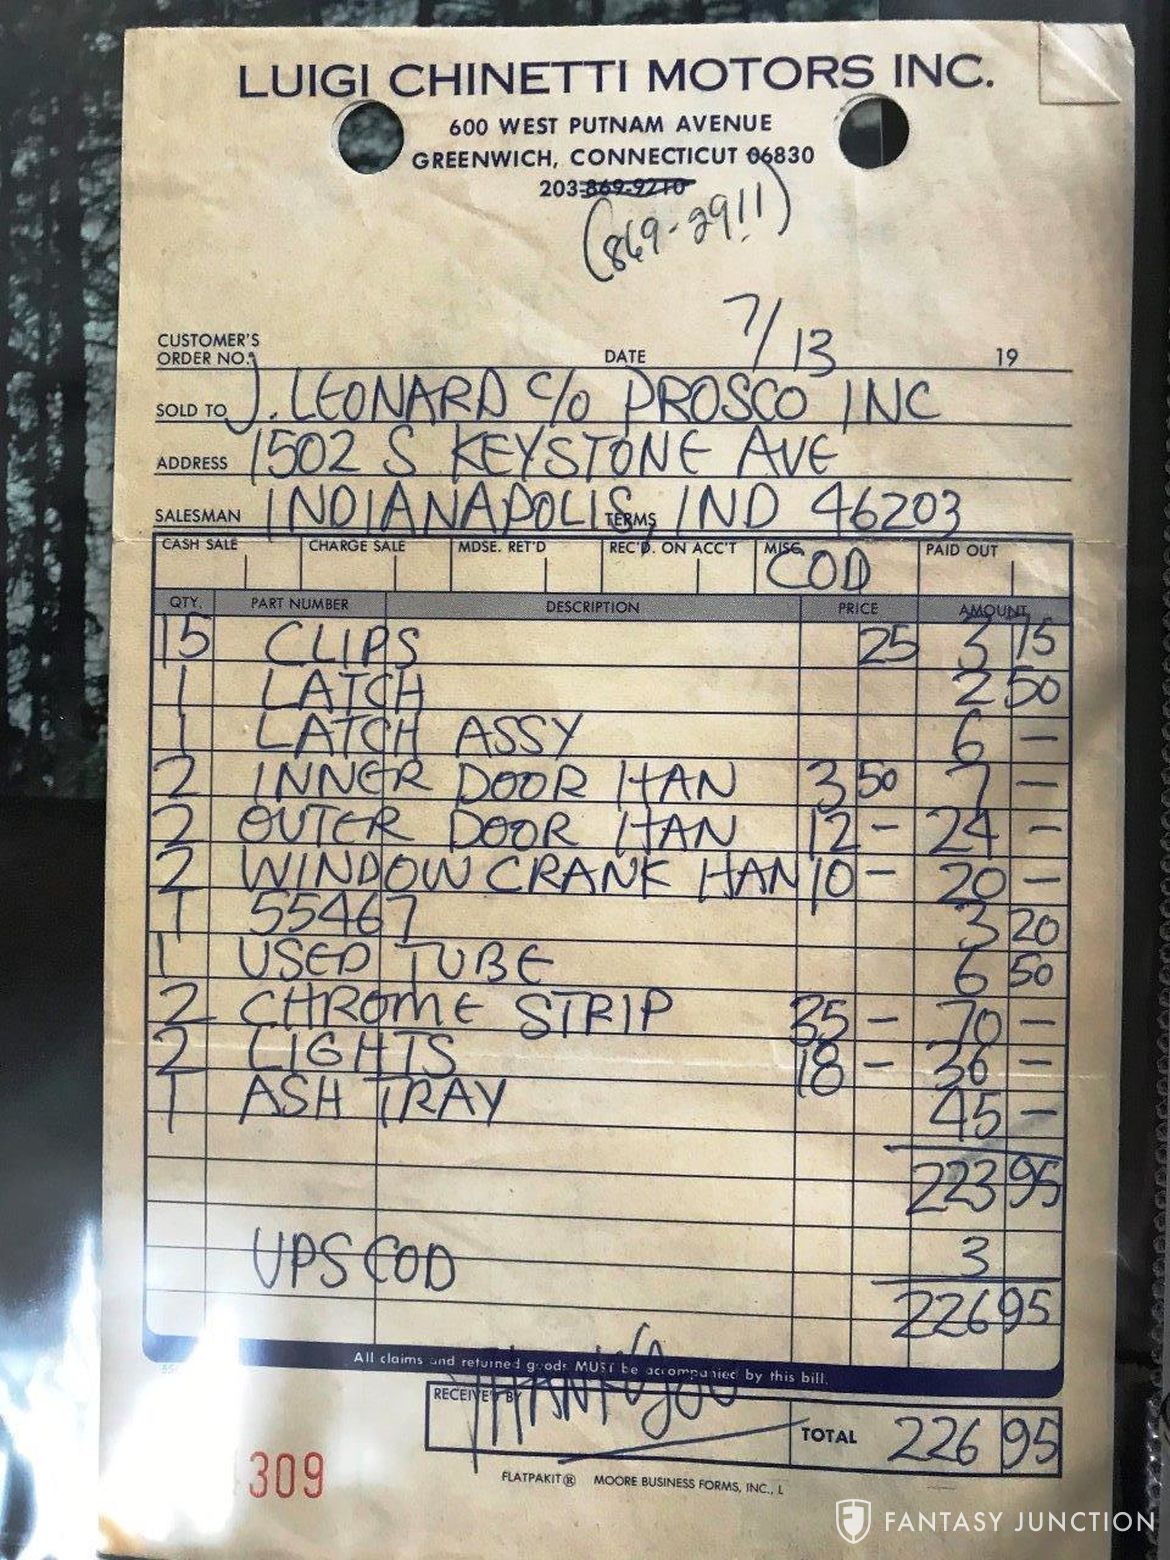 LUIGI CHINETTI MOTORS INC.
600 WEST PUTNAM AVENUE
GREENWICH, CONNECTICUT 06830
203-869-9210
(869-2911)
CUSTOMER'S
ORDER NO. DATE 7/13 19
SOLD TO J. LEONARD C/O PROSCO INC
ADDRESS 1502 S KEYSTONE AVE
SALESMAN INDIANAPOLIS, TERMS IND 46203
CASH SALE CHARGE SALE MDSE. RET'D REC'D. ON ACC'T MISC. COD PAID OUT
QTY. PART NUMBER DESCRIPTION PRICE AMOUNT
15 CLIPS 25 3 75
1 LATCH 2 50
1 LATCH ASSY 6 —
2 INNER DOOR HAN 3 50 7 —
2 OUTER DOOR HAN 12 — 24 —
2 WINDOW CRANK HAN 10 — 20 —
1 55467 3 20
1 USED TUBE 6 50
2 CHROME STRIP 35 — 70 —
2 LIGHTS 18 — 36 —
1 ASH TRAY 45 —
223 95
UPS COD 3
226 95
All claims and returned goods MUST be accompanied by this bill.
RECEIVED BY THANK YOU TOTAL 226 95
309
FLATPAKIT® MOORE BUSINESS FORMS, INC., L
FANTASY JUNCTION